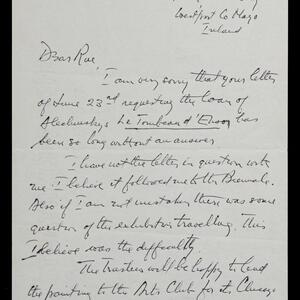 Westport Co Mayo
Ireland
Dear Rue
I am very sorry that your letter
of June 23rd requesting the loan of
Alechinsky's Le Tombeau d'Ensor has
been so long without an answer
I have not the letter in question with
me I believe it followed me to the Biennale.
Also if I am not mistaken there was some
question of the exhibition travelling. This
I believe was the difficulty.
The Trustees will be happy to lend
the painting to the Arts Club for its Chicago